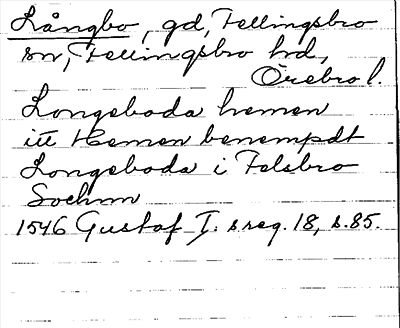 Långbo, gd, Fellingsbro
sn, Fellingsbro hd,
Örebro l.
Longeboda hemen
itt Hemen benempdt
Longeboda i Felsbro
Sochnn
1546 Gustaf I:s reg. 18, s. 85.